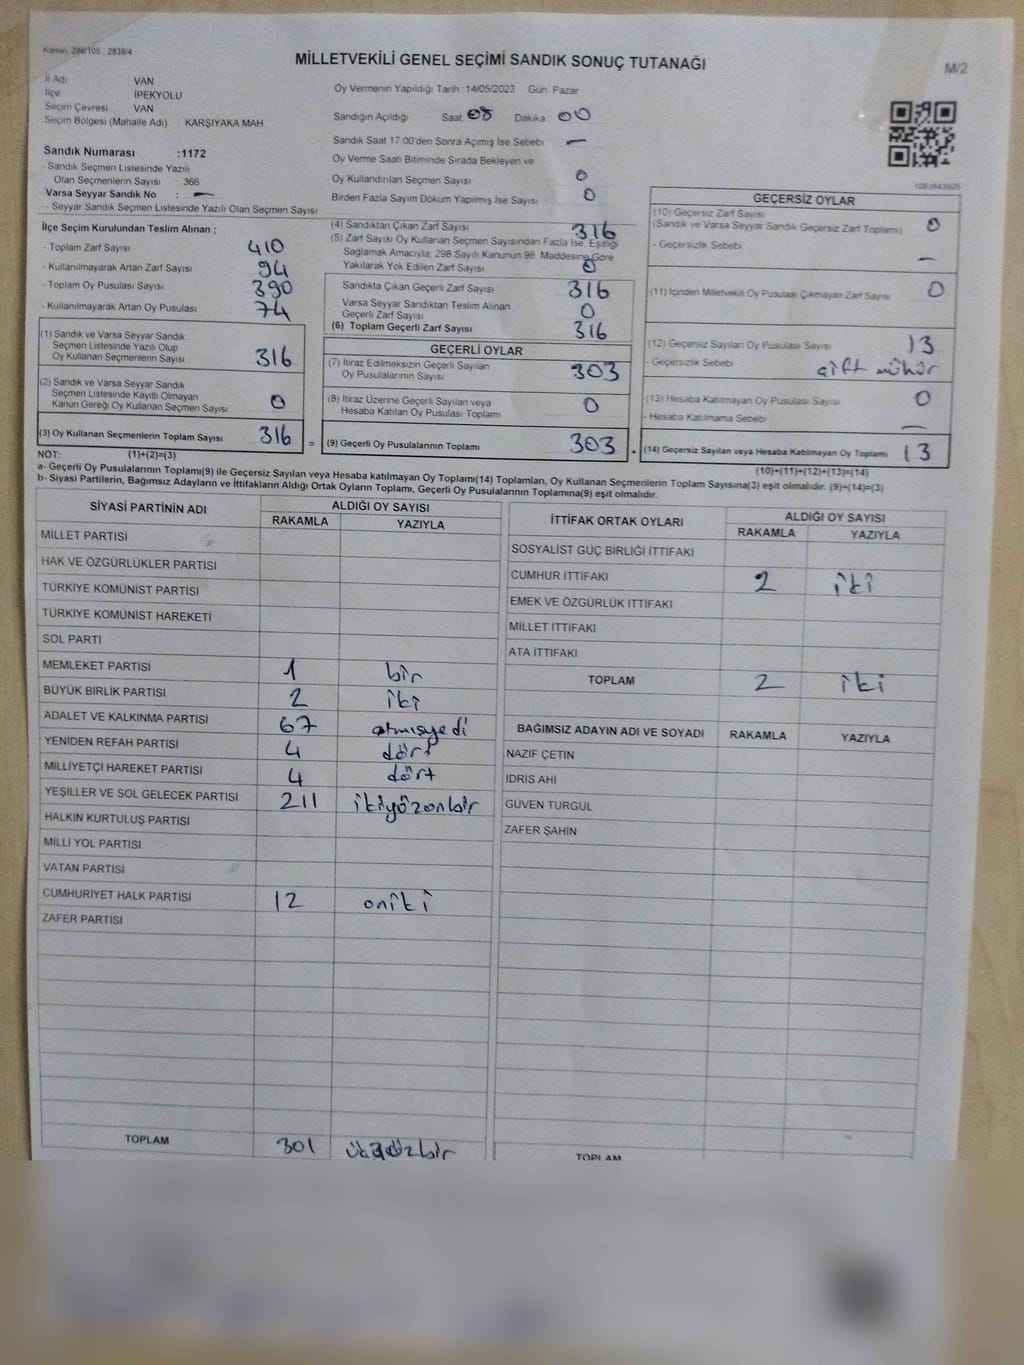 Kanun: 298/105 2839/4
MİLLETVEKİLİ GENEL SEÇİMİ SANDIK SONUÇ TUTANAĞI
M/2
İl Adı : VAN
İlçe : İPEKYOLU
Seçim Çevresi : VAN
Seçim Bölgesi (Mahalle Adı) : KARŞIYAKA MAH
Sandık Numarası :1172
- Sandık Seçmen Listesinde Yazılı
Olan Seçmenlerin Sayısı : 366
Varsa Seyyar Sandık No : —
- Seyyar Sandık Seçmen Listesinde Yazılı Olan Seçmen Sayısı
Oy Vermenin Yapıldığı Tarih :14/05/2023 Gün: Pazar
Sandığın Açıldığı Saat 08 Dakika : 00
Sandık Saat 17:00'den Sonra Açımış İse Sebebi —
Oy Verme Saati Bitiminde Sırada Bekleyen ve
Oy Kullandırılan Seçmen Sayısı 0
Birden Fazla Sayım Döküm Yapılmış İse Sayısı 0
İlçe Seçim Kurulundan Teslim Alınan ;
- Toplam Zarf Sayısı 410
- Kullanılmayarak Artan Zarf Sayısı 94
- Toplam Oy Pusulası Sayısı 390
- Kullanılmayarak Artan Oy Pusulası 74
(1) Sandık ve Varsa Seyyar Sandık
Seçmen Listesinde Yazılı Olup
Oy Kullanan Seçmenlerin Sayısı 316
(2) Sandık ve Varsa Seyyar Sandık
Seçmen Listesinde Kayıtlı Olmayan
Kanun Gereği Oy Kullanan Seçmen Sayısı 0
(3) Oy Kullanan Seçmenlerin Toplam Sayısı 316 =
(4) Sandıktan Çıkan Zarf Sayısı 316
(5) Zarf Sayısı Oy Kullanan Seçmen Sayısından Fazla İse, Eşitliği
Sağlamak Amacıyla; 298 Sayılı Kanunun 98. Maddesine Göre
Yakılarak Yok Edilen Zarf Sayısı 0
Sandıkta Çıkan Geçerli Zarf Sayısı 316
Varsa Seyyar Sandıktan Teslim Alınan
Geçerli Zarf Sayısı 0
(6) Toplam Geçerli Zarf Sayısı 316
GEÇERLİ OYLAR
(7) İtiraz Edilmeksizin Geçerli Sayılan
Oy Pusulalarının Sayısı 303
(8) İtiraz Üzerine Geçerli Sayılan veya
Hesaba Katılan Oy Pusulası Toplamı 0
(9) Geçerli Oy Pusulalarının Toplamı 303
GEÇERSİZ OYLAR
(10) Geçersiz Zarf Sayısı
(Sandık ve Varsa Seyyar Sandık Geçersiz Zarf Toplamı) 0
- Geçersizlik Sebebi —
(11) İçinden Milletvekili Oy Pusulası Çıkmayan Zarf Sayısı 0
(12) Geçersiz Sayılan Oy Pusulası Sayısı 13
- Geçersizlik Sebebi çift mühür
(13) Hesaba Katılmayan Oy Pusulası Sayısı 0
- Hesaba Katılmama Sebebi —
(14) Geçersiz Sayılan veya Hesaba Katılmayan Oy Toplamı 13
NOT: (1)+(2)=(3) (10)+(11)+(12)+(13)=(14)
a- Geçerli Oy Pusulalarının Toplamı(9) ile Geçersiz Sayılan veya Hesaba katılmayan Oy Toplamı(14) Toplamları, Oy Kullanan Seçmenlerin Toplam Sayısına(3) eşit olmalıdır. (9)+(14)=(3)
b- Siyasi Partilerin, Bağımsız Adayların ve İttifakların Aldığı Ortak Oyların Toplamı, Geçerli Oy Pusulalarının Toplamına(9) eşit olmalıdır.
SİYASİ PARTİNİN ADI ALDIĞI OY SAYISI
RAKAMLA YAZIYLA
MİLLET PARTİSİ
HAK VE ÖZGÜRLÜKLER PARTİSİ
TÜRKİYE KOMÜNİST PARTİSİ
TÜRKİYE KOMÜNİST HAREKETİ
SOL PARTİ
MEMLEKET PARTİSİ 1 bir
BÜYÜK BİRLİK PARTİSİ 2 iki
ADALET VE KALKINMA PARTİSİ 67 atmışyedi
YENİDEN REFAH PARTİSİ 4 dört
MİLLİYETÇİ HAREKET PARTİSİ 4 dört
YEŞİLLER VE SOL GELECEK PARTİSİ 211 ikiyüzonbir
HALKIN KURTULUŞ PARTİSİ
MİLLİ YOL PARTİSİ
VATAN PARTİSİ
CUMHURİYET HALK PARTİSİ 12 oniki
ZAFER PARTİSİ
TOPLAM 301 üçyüzbir
İTTİFAK ORTAK OYLARI ALDIĞI OY SAYISI
RAKAMLA YAZIYLA
SOSYALİST GÜÇ BİRLİĞİ İTTİFAKI
CUMHUR İTTİFAKI 2 iki
EMEK VE ÖZGÜRLÜK İTTİFAKI
MİLLET İTTİFAKI
ATA İTTİFAKI
TOPLAM 2 iki
BAĞIMSIZ ADAYIN ADI VE SOYADI RAKAMLA YAZIYLA
NAZİF ÇETİN
İDRİS AHİ
GÜVEN TURGUL
ZAFER ŞAHİN
TOPLAM